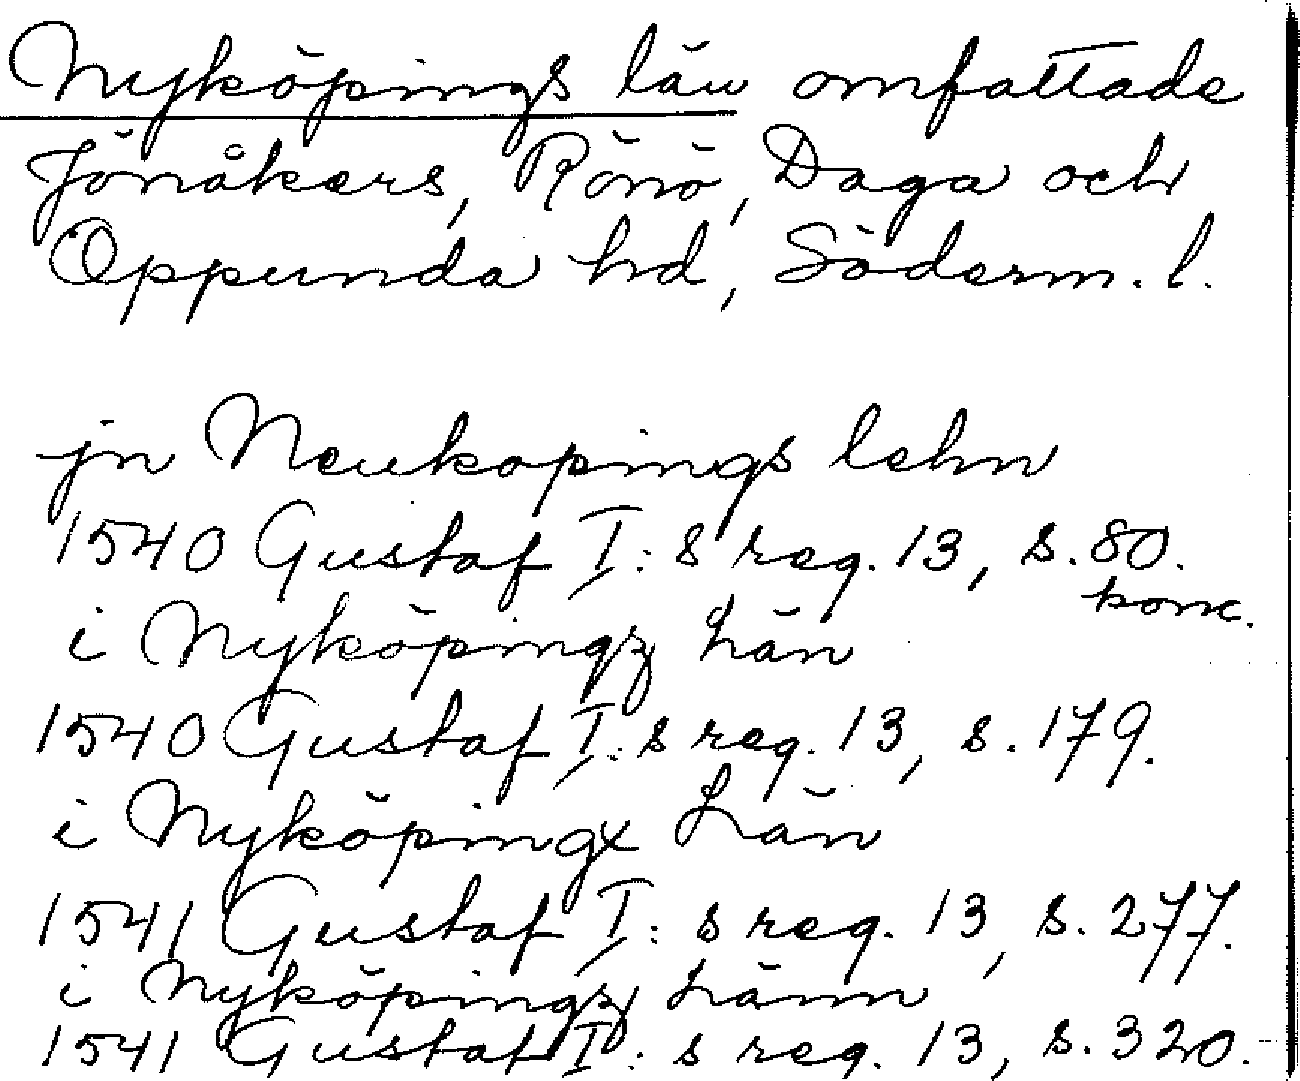 Nyköpings län omfattade
Jönåkers, Rönö, Daga och
Oppunda hd, Söderm. l.
jn Neukopings lehn
1540 Gustaf I:s reg. 13, s. 80.
konc.
i Nyköpingz Län
1540 Gustaf I:s reg. 13, s. 179.
i Nyköpingx Län
1541 Gustaf I:s reg. 13, s. 277.
i Nyköpingz Länn
1541 Gustaf I:s reg. 13, s. 320.